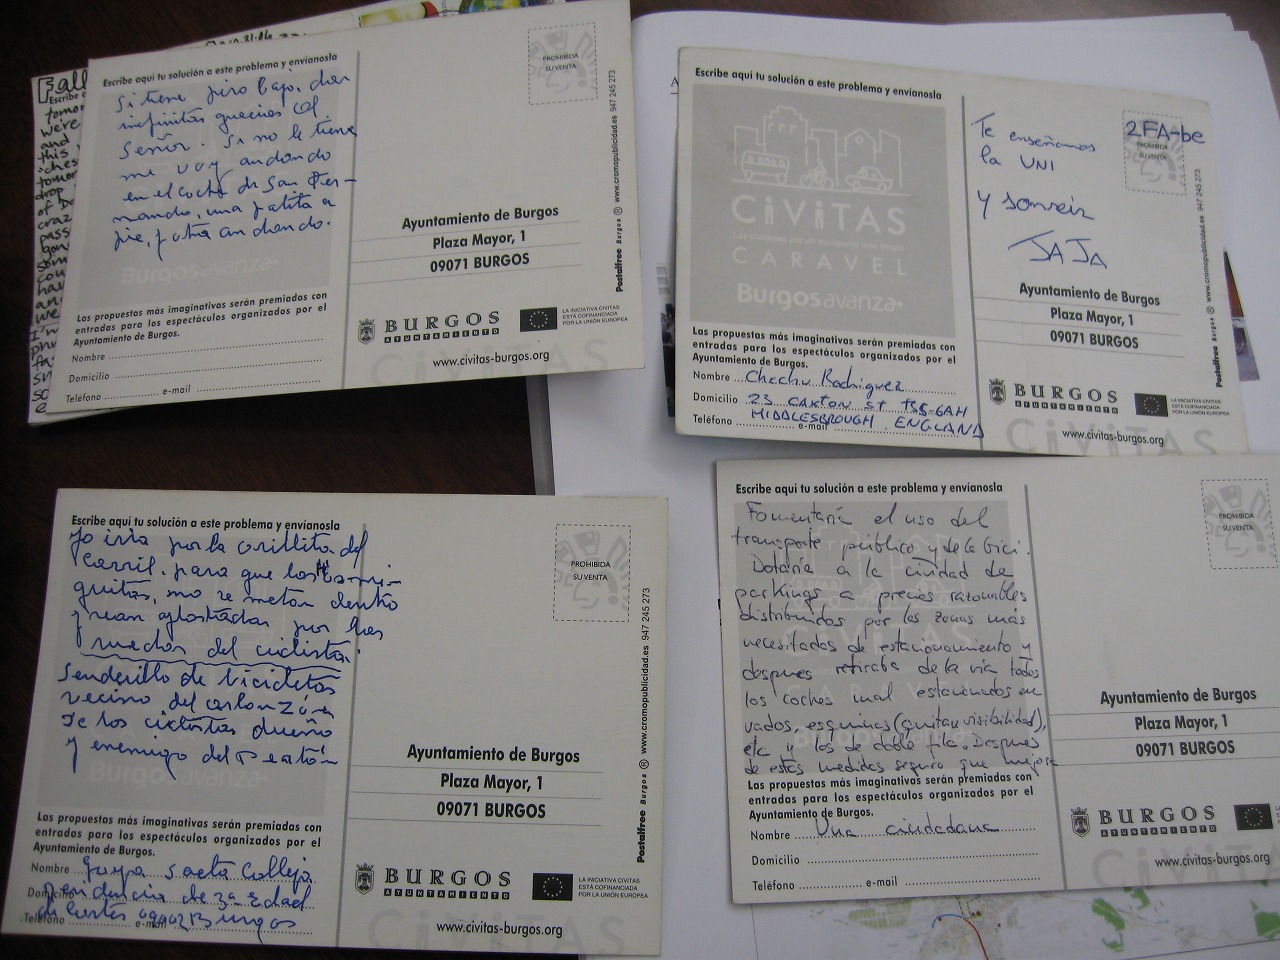 Escribe aquí tu solución a este problema y envíanosla
Si tiene piso bajo, dar
infinitas gracias al
Señor. Si no le tiene
me voy andando
en el coche de San Fer-
nando, una patita a
pie, y otra andando.
Burgosavanza+
Las propuestas más imaginativas serán premiadas con
entradas para los espectáculos organizados por el
Ayuntamiento de Burgos.
Nombre
Domicilio
Teléfono e-mail
PROHIBIDA
SU VENTA
Ayuntamiento de Burgos
Plaza Mayor, 1
09071 BURGOS
BURGOS
AYUNTAMIENTO
LA INICIATIVA CIVITAS
ESTÁ COFINANCIADA
POR LA UNIÓN EUROPEA
www.civitas-burgos.org
CiViTAS
Postalfree Burgos ® www.cromopublicidad.es 947 245 273
Escribe aquí tu solución a este problema y envíanosla
CiViTAS
CARAVEL
Burgosavanza+
Las propuestas más imaginativas serán premiadas con
entradas para los espectáculos organizados por el
Ayuntamiento de Burgos.
Nombre Chechu Rodriguez
Domicilio 23 CAXTON ST TS5-6AH
MIDDLESBROUGH. ENGLAND
Teléfono e-mail
Te enseñamos
la UNI
y sonreir
JAJA
2FA-be
PROHIBIDA
SU VENTA
Ayuntamiento de Burgos
Plaza Mayor, 1
09071 BURGOS
BURGOS
AYUNTAMIENTO
LA INICIATIVA CIVITAS
ESTÁ COFINANCIADA
POR LA UNIÓN EUROPEA
www.civitas-burgos.org
CiViTAS
Postalfree Burgos ® www.cromopublicidad.es 947 245 273
Escribe aquí tu solución a este problema y envíanosla
Yo iria por la orillita del
carril. para que las hormi-
guitas, no se metan dentro
y sean aplastadas por las
ruedas del ciclista.
Senderillo de bicicletas
vecino del arlanzón
de los ciclistas dueño
y enemigo del Peatón
Burgosavanza+
Las propuestas más imaginativas serán premiadas con
entradas para los espectáculos organizados por el
Ayuntamiento de Burgos.
Nombre
Domicilio residencia de 3ª Edad
de Cortes 09002 Burgos
Teléfono e-mail
PROHIBIDA
SU VENTA
Ayuntamiento de Burgos
Plaza Mayor, 1
09071 BURGOS
BURGOS
AYUNTAMIENTO
LA INICIATIVA CIVITAS
ESTÁ COFINANCIADA
POR LA UNIÓN EUROPEA
www.civitas-burgos.org
CiViTAS
Postalfree Burgos ® www.cromopublicidad.es 947 245 273
Escribe aquí tu solución a este problema y envíanosla
Fomentaría el uso del
transporte público y de la bici.
Dotaría a la ciudad de
parkings a precios razonables
distribuidos por las zonas más
necesitadas de estacionamiento y
despues retiraba de la vía todos
los coches mal estacionados en
vados, esquinas (quitan visibilidad),
etc y los de doble fila. Despues
de estas medidas seguro que mejora
Las propuestas más imaginativas serán premiadas con
entradas para los espectáculos organizados por el
Ayuntamiento de Burgos.
Nombre Una ciudadana
Domicilio
Teléfono e-mail
PROHIBIDA
SU VENTA
Ayuntamiento de Burgos
Plaza Mayor, 1
09071 BURGOS
BURGOS
AYUNTAMIENTO
www.civitas-burgos.org